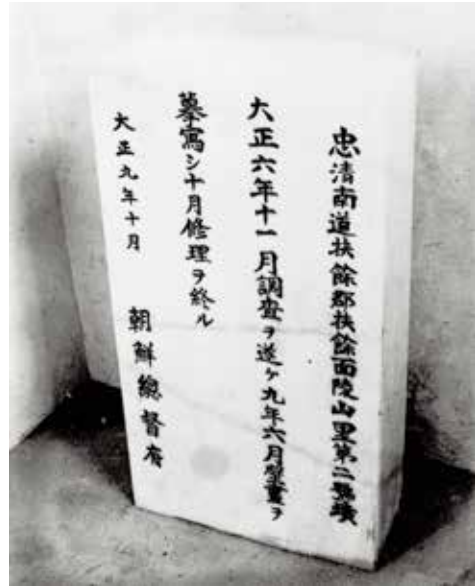 忠清南道扶餘郡扶餘面陵山里第二號墳
大正六年十一月調査ヲ遂ケ九年六月壁畫ヲ
摹寫シ十月修理ヲ終ル
大正九年十月 朝鮮總督府